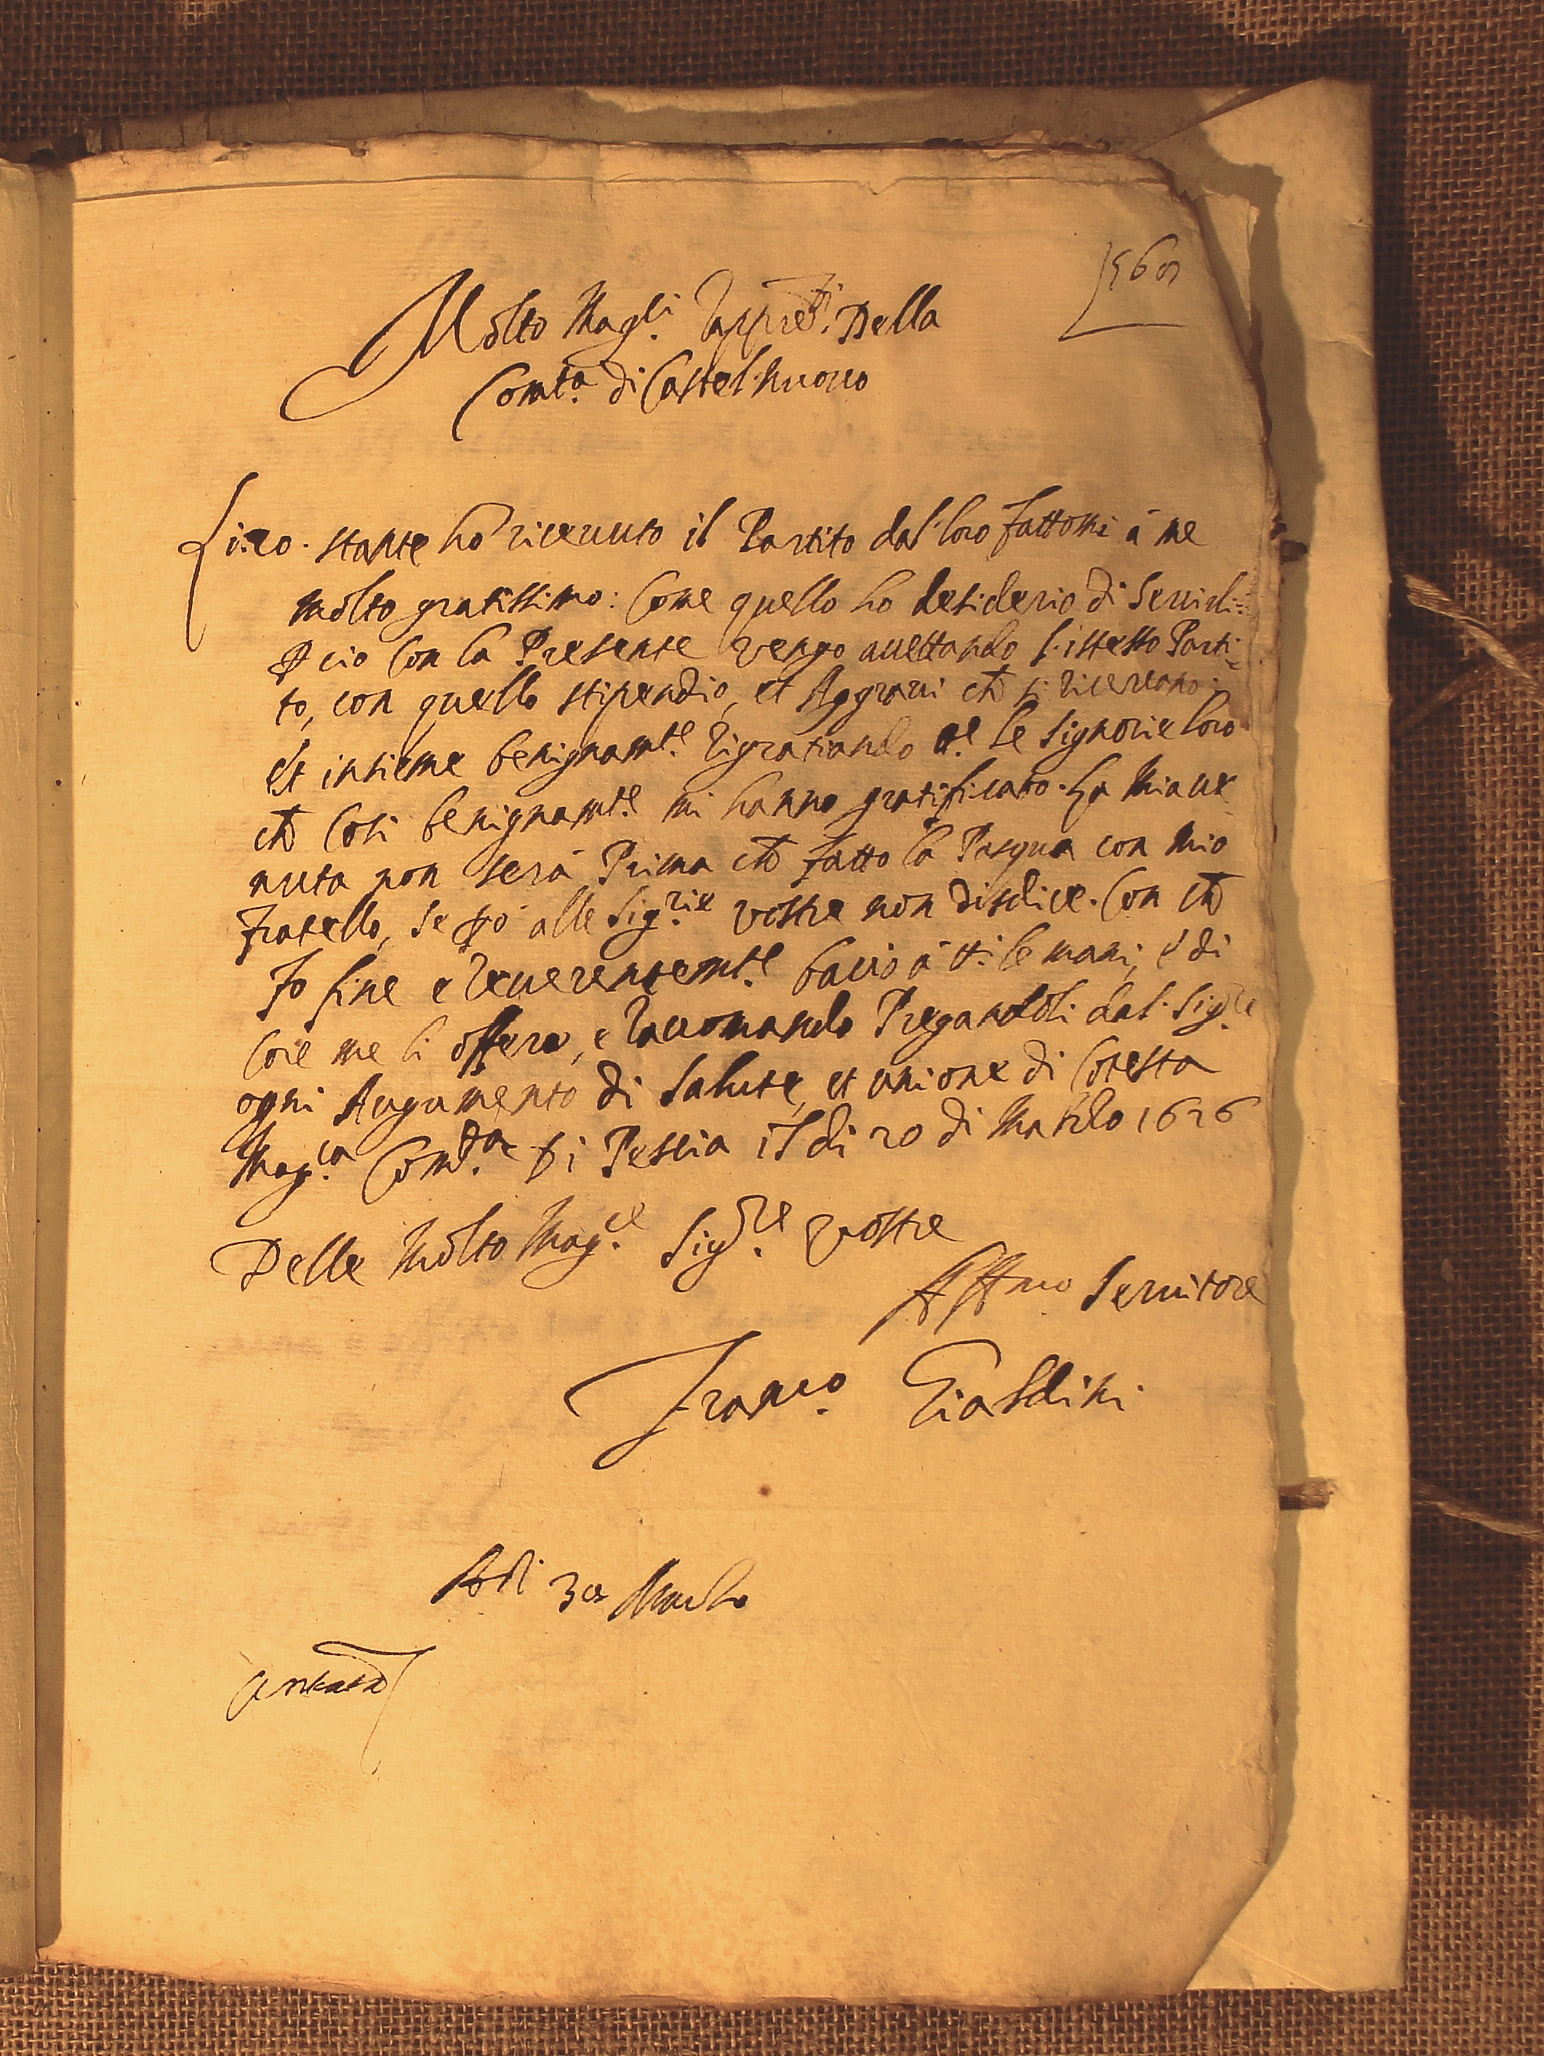 560
Molto Mag.li Rappre.ti Della
Com.tà di Castel. nuovo
stante ho riceuuto il Partito dal loro fattomi à me
molto gratissimo: Come quello ho desiderio di Seruirli:
Però con la Presente vengo accettando l'istesso Parti-
to, con quello stipendio, et Aggravi ch si ricercano:
Et insieme benignam.te rigratiando le Signorie loro
ch Così benignam.te mi hanno gratificato. La mia ue
nuta non sera Prima ch fatto la Pasqua con mio
fratello, se però alle Sig.rie vostre non disdice. Con ch
Io fine e reuerentem.te bacio à tt.i le mani, e di
Core me li offero, e racomando Pregandoli dal Sig.re
ogni Augumento di Salute, et unione di Cotesta
Mag.ca Com.tà Di Pescia il di 20 di Marzo 1626
Delle Molto Mag.ce Sig.rie vostre
Aff.mo Seruitore
Franc.o Giardini
Adi 30 Marzo